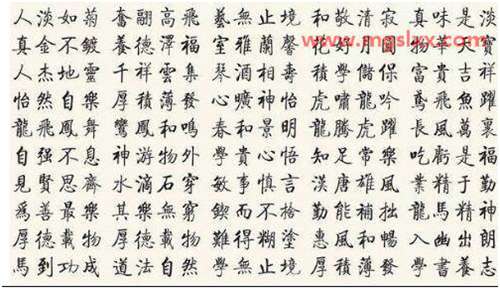 人淡如菊 奮翮高飛 藝無止境 和敬清寂 真味是淡
真金不鍍 養德澤福 室雅蘭馨 花好月圓 物華天寶
www.mgslxx.com
人杰地靈 千祥雲集 琴 相 積學儲 富貴吉祥
怡然自樂 厚積薄發 心曠神怡 虎嘯龍吟 鳶飛魚躍
龍飛鳳舞 鸞鳳和鳴 春和景明 龍騰虎躍 長風萬裏
自强不息 神游物外 學貴心悟 知足常樂 吃虧是福
見賢思齊 水滴石穿 敏事慎言 漢唐雄風 業精于勤
爲善最樂 其樂無窮 鍥而不捨 勤能補拙 龍馬精神
厚德載物 厚德載物 難得糊塗 惠風和暢 入幽出朗
馬到功成 道法自然 學無止境 厚積薄發 學書養志